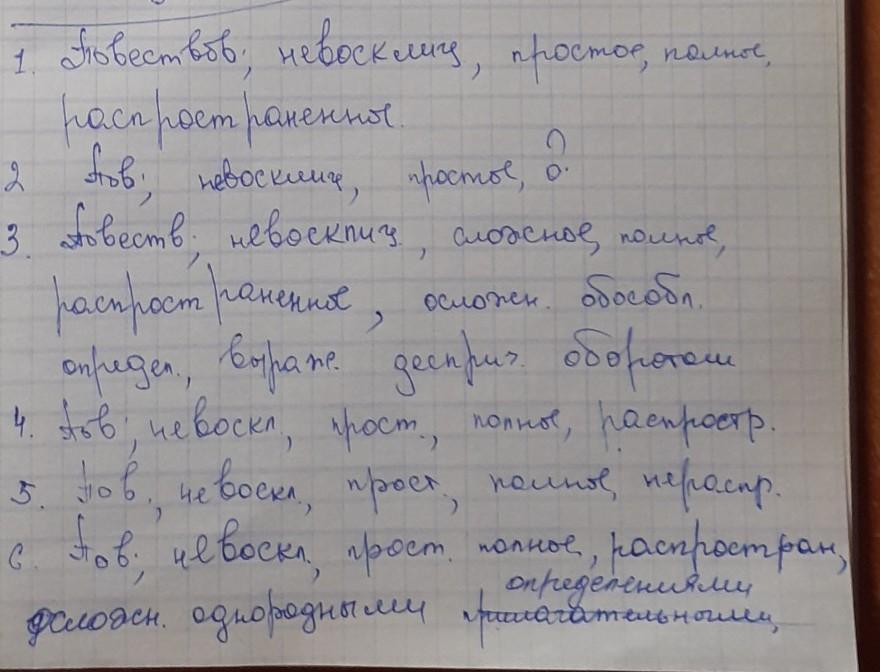 1. Повествов; невосклиц, простое, полное,
распространенное.
2 Пов; невосклиц, простое, ?
3. Повеств; невосклиц, сложное, полное,
распространенное, осложен. обособл.
определ., выраж. дееприч. оборотом
4. Пов; невоскл., прост., полное, распростр.
5. Пов; невоскл., прост, полное, нераспр.
6. Пов; невоскл., прост. полное, распростран,
определениями
осложн. однородными прилагательными,